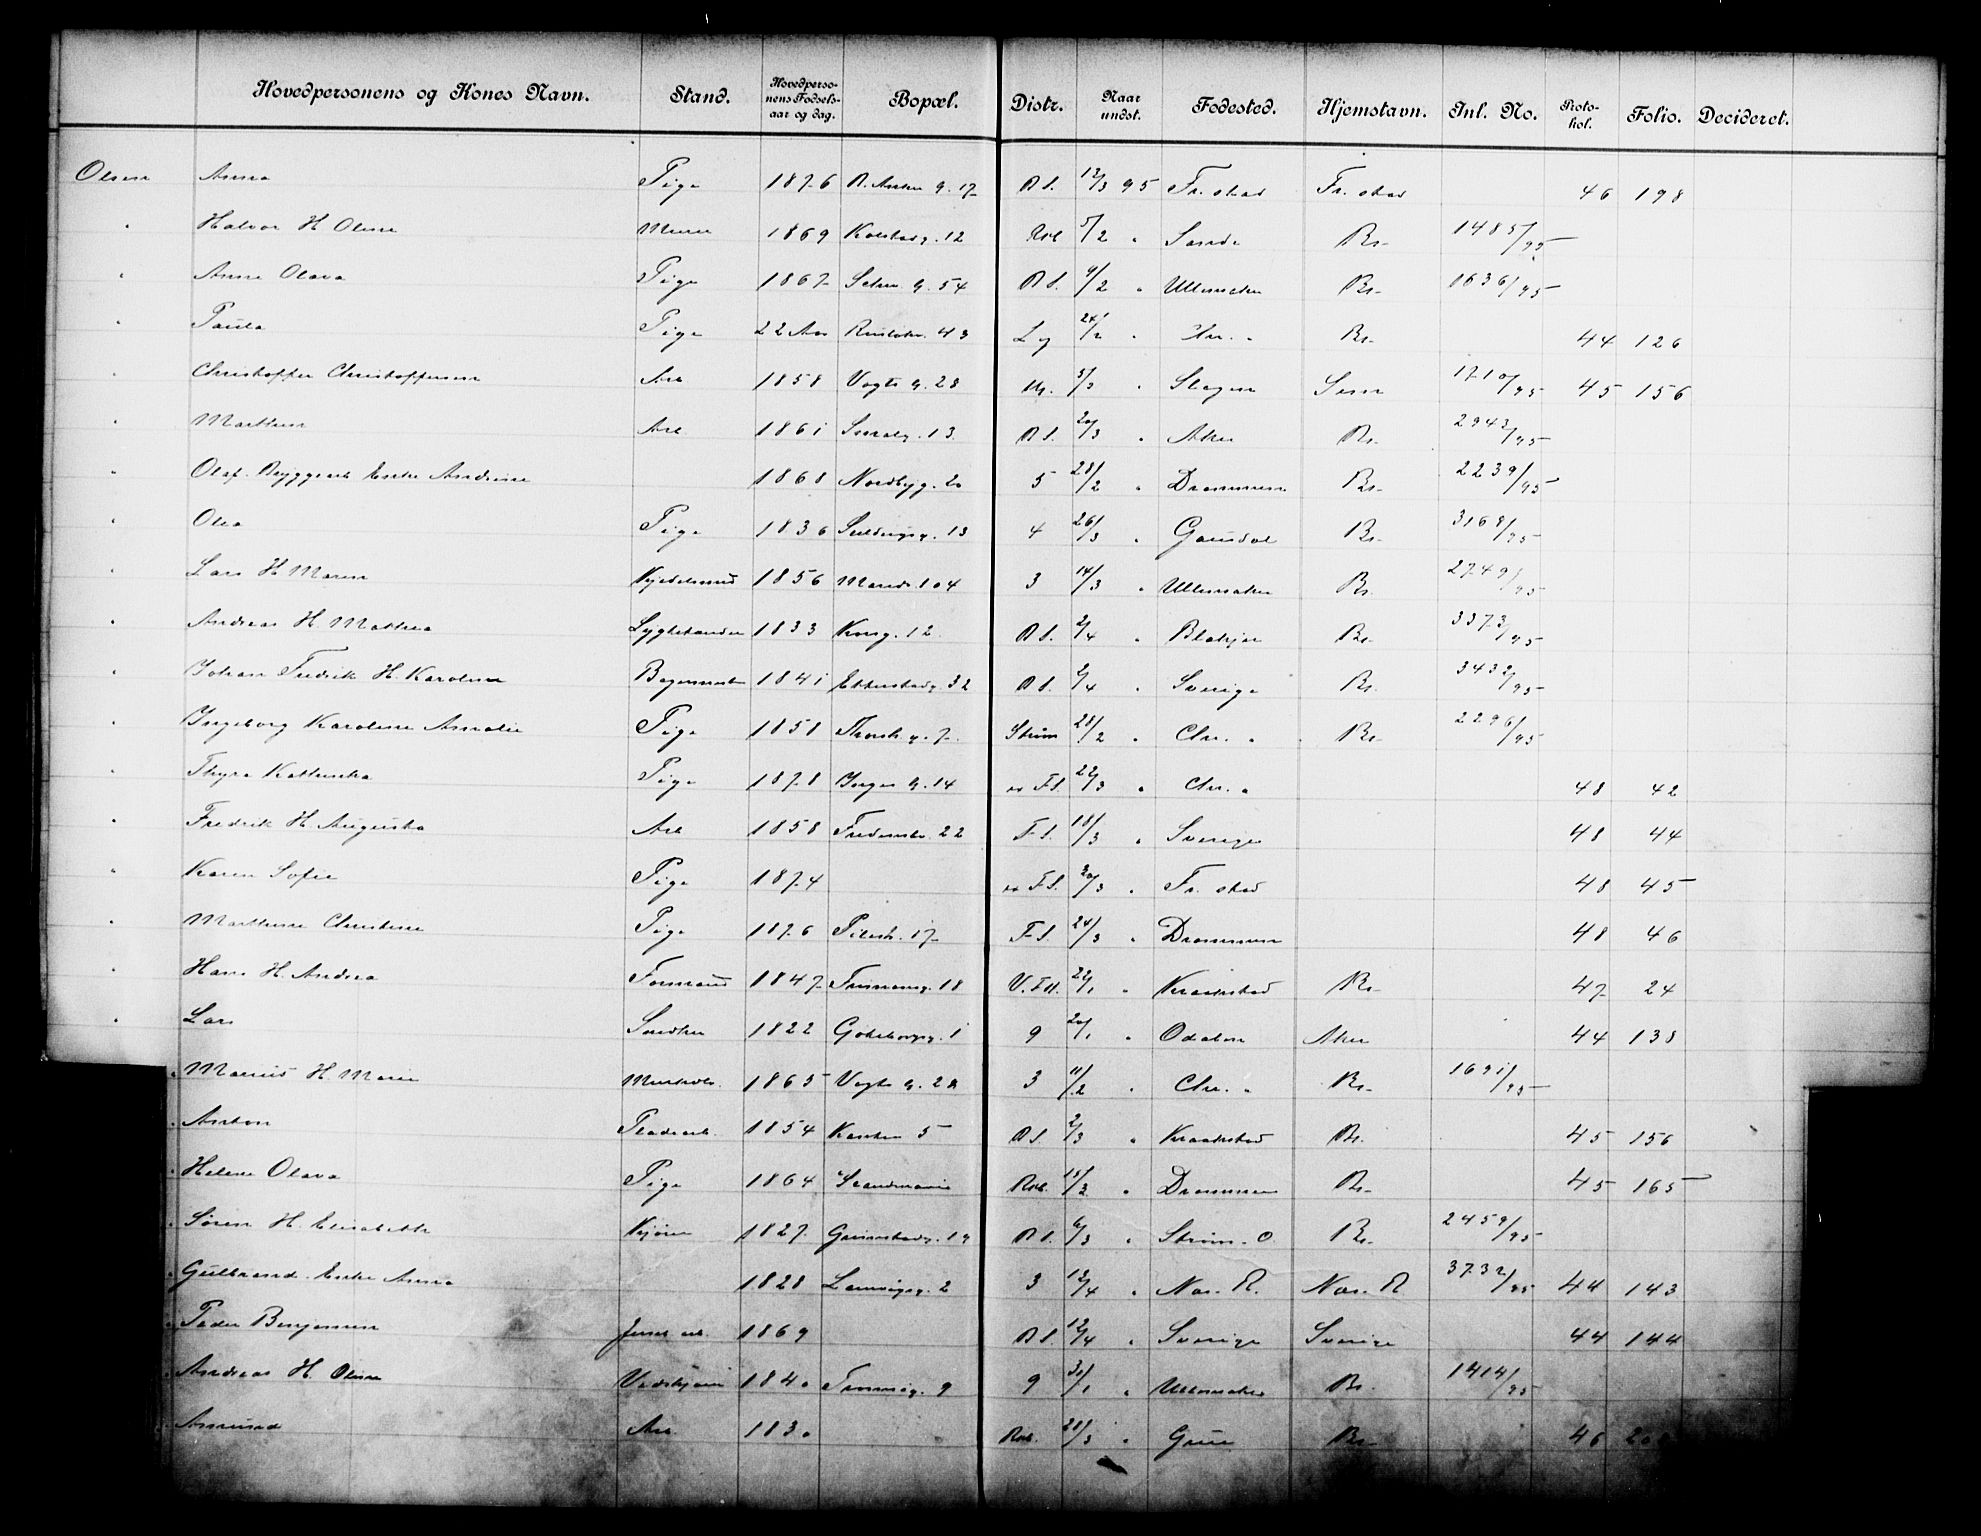 Hovedpersonens og Kones Navn. Stand. Hovedperso-nens Fødsels-aar og dag. Bopæl. Distr. Naar undst. Fødested. Hjemstavn. Inl. No. Proto-kol. Folio. Decideret.
Olsen Anna Pige 1876 R. Anker g. 17 R S. 12/3 95 Fr. stad Fr. stad 46 198
" Halvor H Oline Murer 1869 Kolstadg. 12 5/2 " Sande Bs- 1485/95
" Anne Olava Pige 1867 g. 54 R S. 9/2 " Ullensaker Bs- 1636/95
" Paula Pige 22 Aar 43 Lg " Chr. " Bs- 44 126
" Christoffer Christoffersen Arb 1858 Vogts g. 28 5/3 " Slagen Sem 1710/95 45 156
" Mathias Arb 1861 Smalg. 13. R S. 20/3 " Aker Bs- 2943/95
" Olaf. Bryggearb Enke Andrine 1868 Nordbyg. 20 5 28/2 " Drammen Bs- 2239/95
" Olea Pige 1836 13 4 26/3 " Gausdal Bs- 3168/95
" Lars H. Maren Kjedelsmed 1856 104 3 14/3 " Ullensaker Bs. 2749/95
" Andreas H. Mathea Lygtetænder 1833 12. R S. 2/4 " Blakjer Bs- 3373/95
" Johan Fredrik H. Karoline 1841 Eberstadg. 32 R S. 2/4 " Sverige Bs. 3432/95
" Ingeborg Karoline Amalie Pige 1858 Thorsh. g. 7. Strøm 28/2 " Chr. " Bs- 2296/95
" Thyra Kathinka Pige 1878 g. 14 F S. 22/3 " Chr. " 48 42
" Fredrik H. Augusta Arb 1858 22 F S. 18/3 " Sverige 48 44
" Karen Sofie Pige 1874 F S. 20/3 " Fr. stad 48 45
" Mathine Christine Pige 1876 Pilestr. 17 F S. 24/3 " Drammen 48 46
" Hans H. Andrea Formand 1847 18 V. Fl. 22/1 " Kraakstad Bs- 47 24
" Lars Snedker 1822 Gøteborgg. 1 9 20/1 " Odalen Aker 44 138
" Marius H. Marie 1865 Vogts g. 28 3 11/2 " Chr. " Bs- 1691/95
" Anton 1854 5 R S. 2/3 " Kraakstad Bs. 45 156
" Helene Olava Pige 1864 15/2 " Drammen Bs- 45 165
" Søren H. Elisabeth Kjører 1827 Grimstadg. 19 R S. 6/3 " Strøm. O. Bs- 2459/95
" Gulbrand. Enke Anna 1828 Laurvigsg. 2 3 12/4 " Nas. R. Nas. R 3732/95 44 143
" Peder Benjamin 1869 R S. 12/4 " Sverige Sverige 44 144
" Andreas H. Oline 1840 9 9 31/1 " Ullensaker Bs. 1414/95
" Amund Arb. 1830 28/3 " Grue Bs- 46